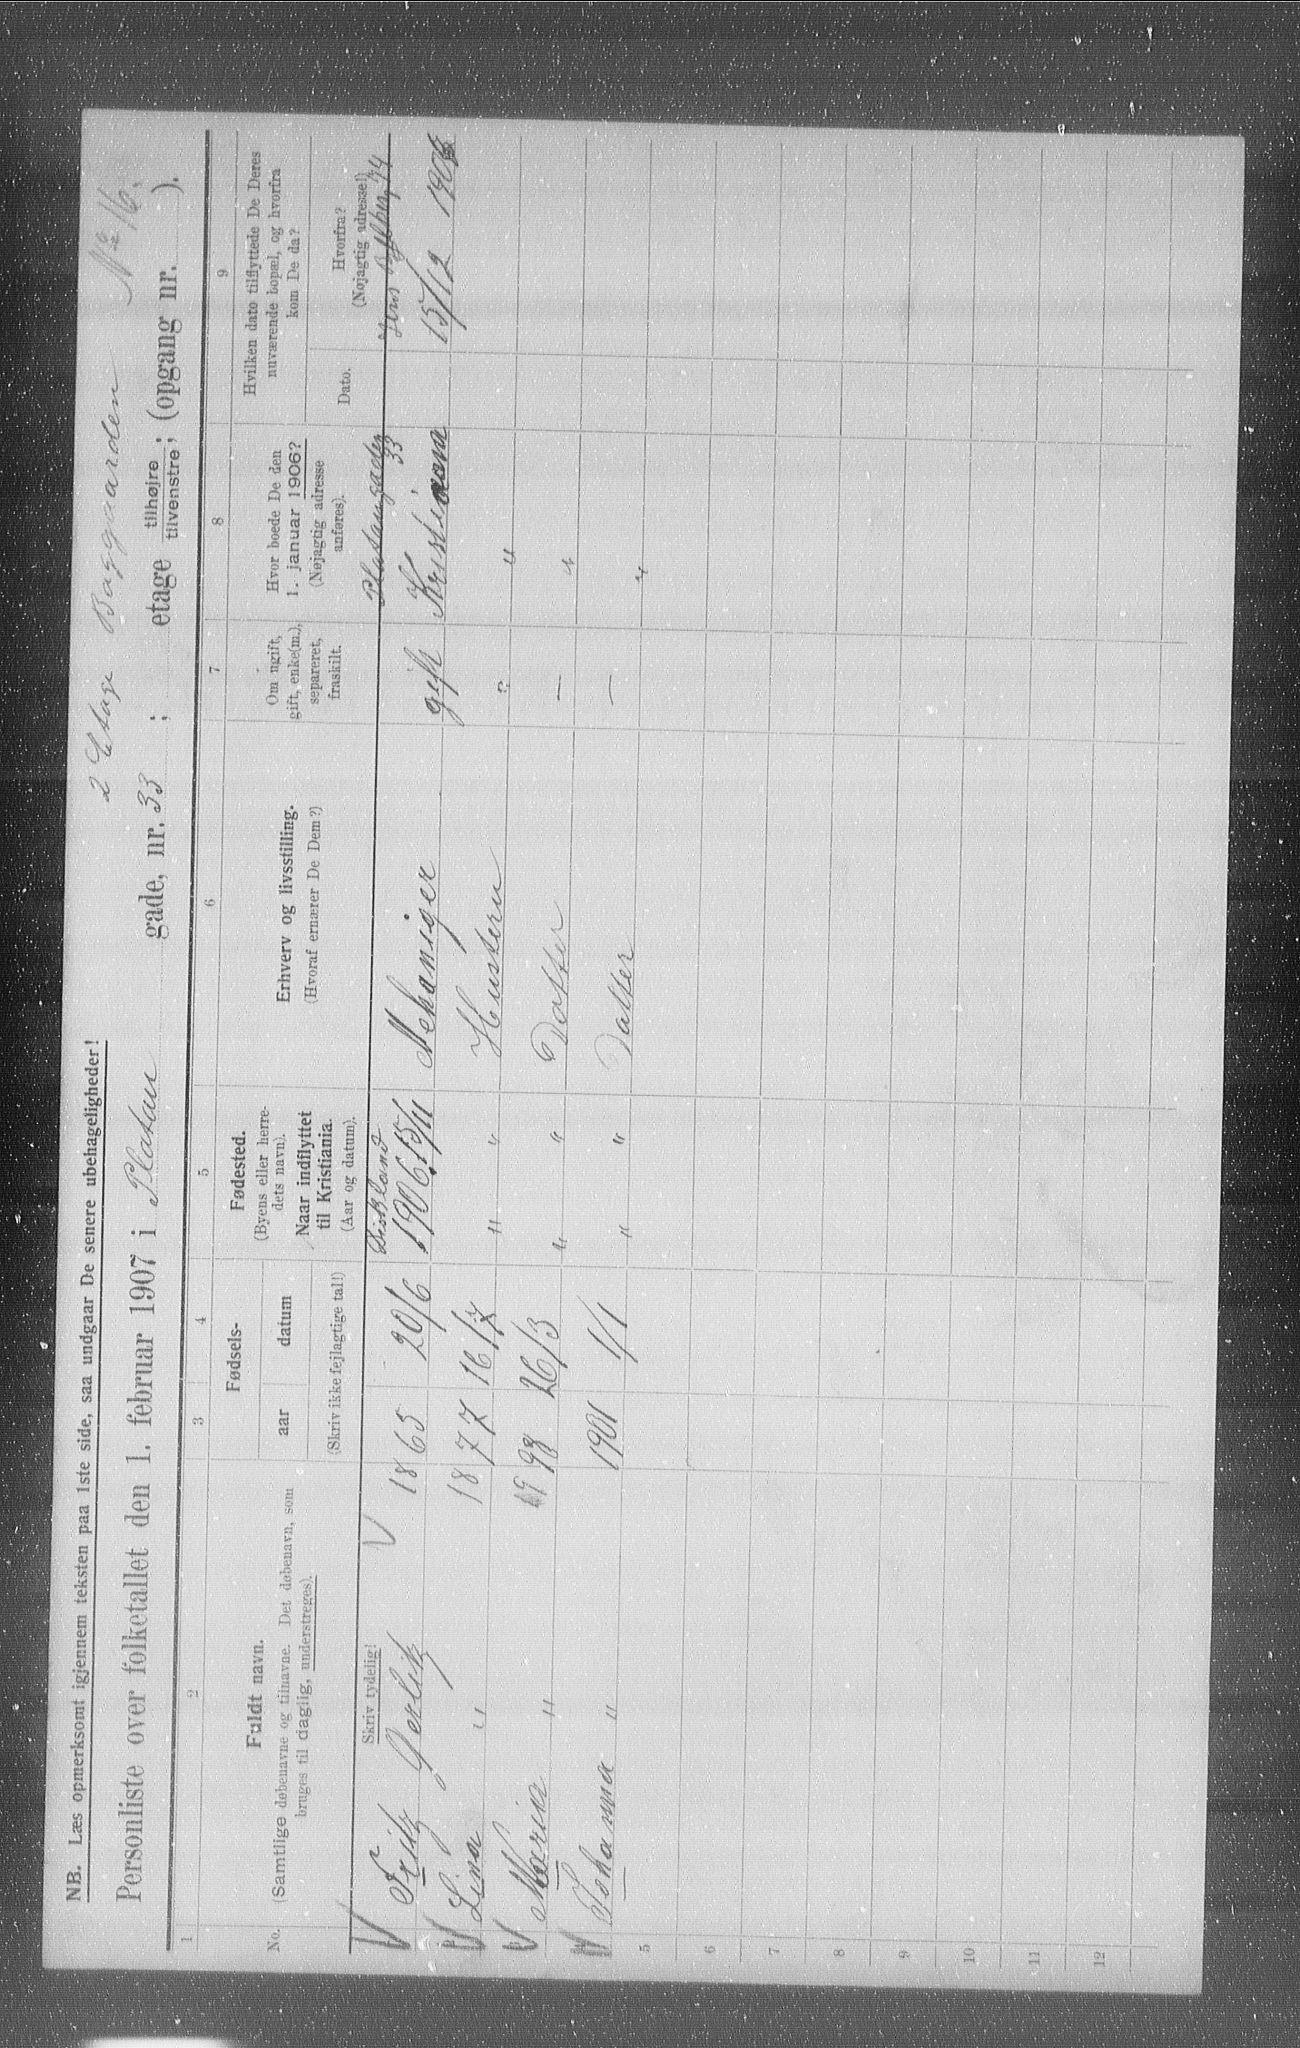 2 Etage Baggaarden No 16.
NB. Læs opmerksomt igjennem teksten paa 1ste side, saa undgaar De senere ubehageligheder!
Personliste over folketallet den 1. februar 1907 i Platan gade, nr. 33 ; etage tilhøjre tilvenstre ; (opgang nr. ).
1 2 3 4 5 6 7 8 9
No.
Fuldt navn.
(Samtlige døbenavne og tilnavne. Det døbenavn, som
bruges til daglig, understreges).
Skriv tydelig!
Fødsels-
aar datum
(Skriv ikke fejlagtige tal!)
Fødested.
(Byens eller herre-
dets navn).
Naar indflyttet
til Kristiania.
(Aar og datum).
Erhverv og livsstilling.
(Hvoraf ernærer De Dem?)
Om ugift,
gift, enke(m.),
separeret,
fraskilt.
Hvor boede De den
1. januar 1906?
(Nøjagtig adresse
anføres).
Hvilken dato tilflyttede De Deres
nuværende bopæl, og hvorfra
kom De da?
Dato.
Hvorfra?
(Nøjagtig adresse!)
Platangaden 33 Jens Bjelkes 74
Fritz Gerlitz 1865 20/6 1906 15/11 Mekaniger gift Kristiania 15/12 1906
Lina " 1877 16/7 " " Hustern " "
Maria " 98 26/3 " " Datter — "
Johanna " 1901 1/1 " " Datter — "
5
6
7
8
9
10
11
12